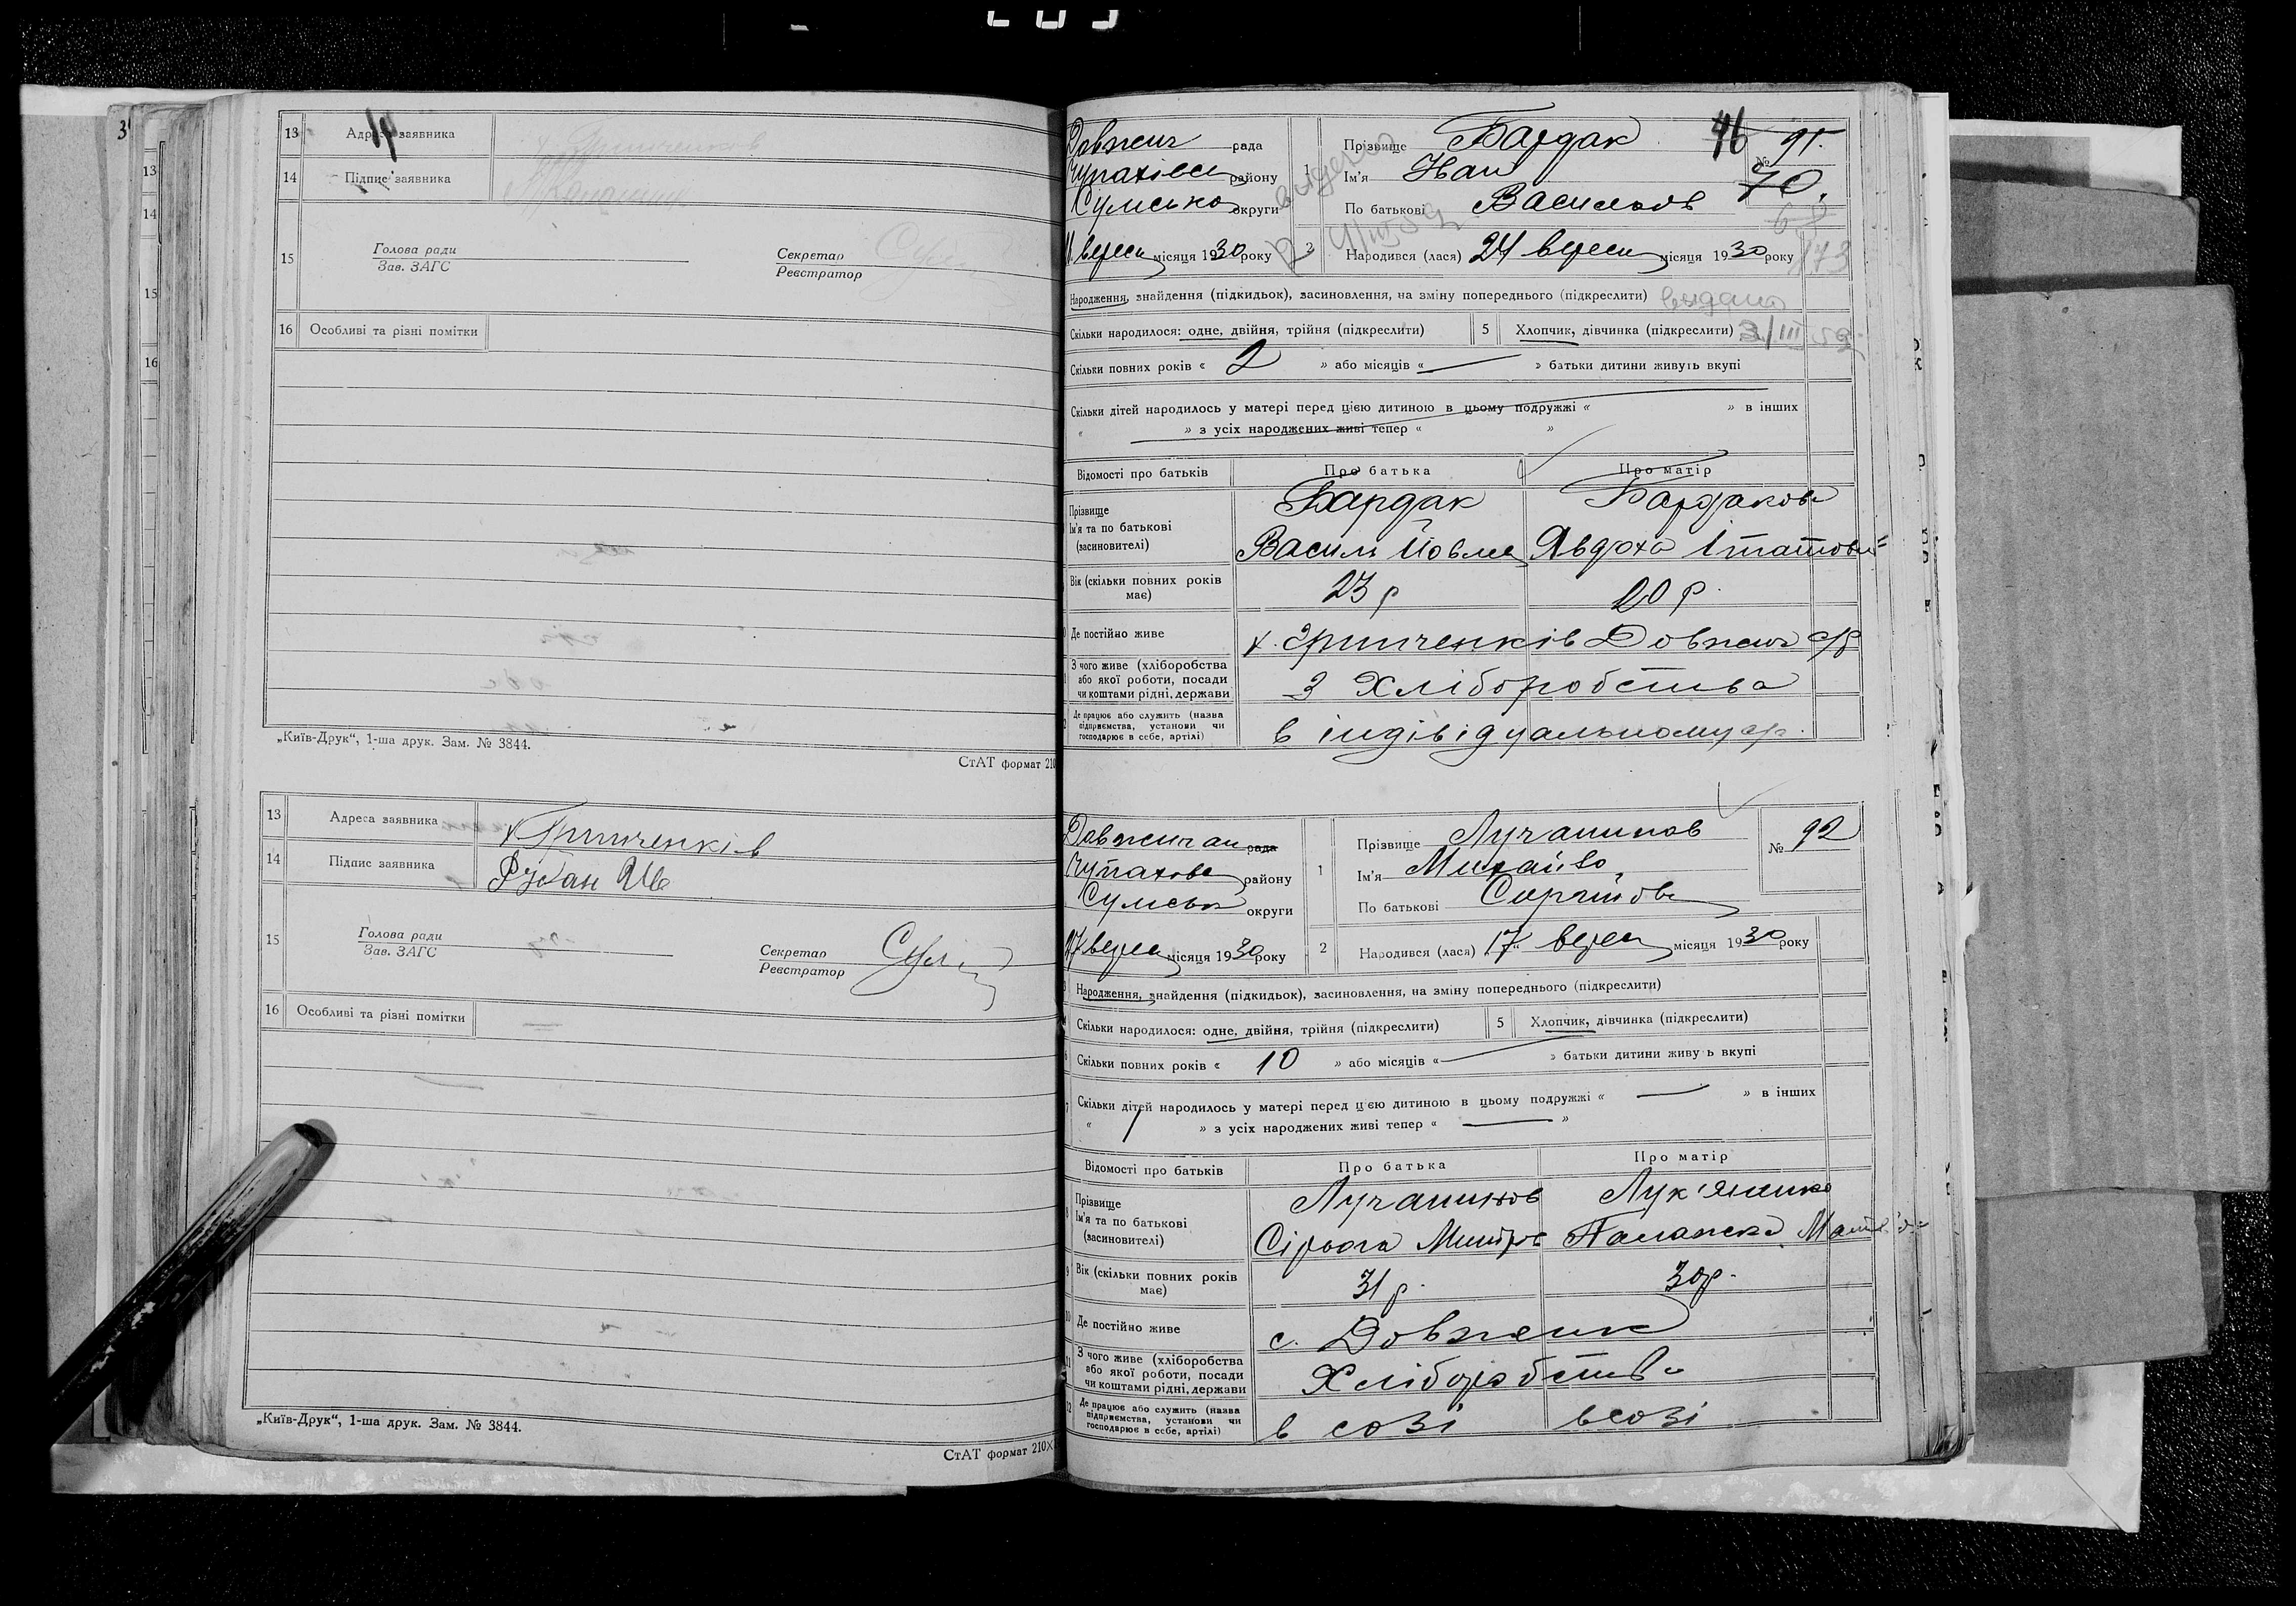 13 Адреса заявника
14 Підпис заявника
15 Голова ради
Зав. ЗАГС
Секретар
Реєстратор
16 Особливі та різні помітки
„Київ-Друк“, 1-ша друк. Зам. № 3844.
СтАТ формат 210
13 Адреса заявника х Гринченків
14 Підпис заявника
15 Голова ради
Зав. ЗАГС
Секретар
Реєстратор
16 Особливі та різні помітки
„Київ-Друк“, 1-ша друк. Зам. № 3844.
СтАТ формат 210×
рада
району
Сумсько округи
верес місяця 1930 року
1 Прізвище Бардак
Ім'я Иван
По батькові Васильов
46
№ 91.
70.
2 Народився (лася) 24 верес місяця 1930 року
Народження, знайдення (підкидьок), засиновлення, на зміну попереднього (підкреслити)
Скільки народилося: одне, двійня, трійня (підкреслити) 5 Хлопчик, дівчинка (підкреслити) 3/III 59
Скільки повних років « 2 » або місяців « — » батьки дитини живуть вкупі
Скільки дітей народилось у матері перед цією дитиною в цьому подружжі « » в інших
« » з усіх народжених живі тепер « »
Відомості про батьків Про батька Про матір
Прізвище
Ім'я та по батькові
(засиновителі)
Бардак Бардакова
Василь Явдоха
Вік (скільки повних років має) 23 р 20 р.
Де постійно живе х. Гринченків Довжик с/р
З чого живе (хліборобства або якої роботи, посади чи коштами рідні, держави З Хліборобства
Де працює або служить (назва підприємства, установи чи господарює в себе, артілі) в індівідуальному
рада
району
Сумськ округи
17 верес місяця 1930 року
1 Прізвище Лучанинов
Ім'я Михайло
По батькові
№ 92
2 Народився (лася) 17 верес місяця 1930 року
3 Народження, знайдення (підкидьок), засиновлення, на зміну попереднього (підкреслити)
Скільки народилося: одне, двійня, трійня (підкреслити) 5 Хлопчик, дівчинка (підкреслити)
6 Скільки повних років « 10 » або місяців « — » батьки дитини живу ь вкупі
7 Скільки дітей народилось у матері перед цією дитиною в цьому подружжі « — » в інших
« 1 » з усіх народжених живі тепер « — »
Відомості про батьків Про батька Про матір
8 Прізвище
Ім'я та по батькові
(засиновителі)
Лучанинов Лук'яненко
Сірьога Митров Палажка
9 Вік (скільки повних років має) 31 р. 30 р.
10 Де постійно живе с. Довжик
11 З чого живе (хліборобства або якої роботи, посади чи коштами рідні, держави Хліборобства
12 Де працює або служить (назва підприємства, установи чи господарює в себе, артілі) в созі в созі